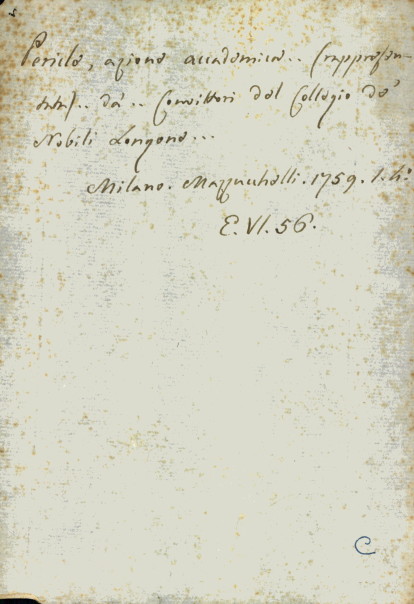 Pericle, azione accademica.. (rappresen-
tata).. da'.. Convittori del Collegio de'
Nobili Longone...
Milano. Mazzucchelli. 1759. 1. 4°
E. VI. 56.
C